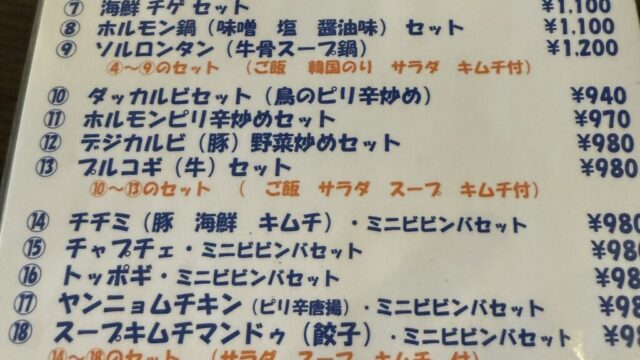 ⑦ 海鮮 チゲ セット ¥1,100
⑧ ホルモン鍋（味噌 塩 醤油味） セット ¥1,100
⑨ ソルロンタン（牛骨スープ鍋） ¥1,200
④〜⑨のセット （ご飯 韓国のり サラダ キムチ付）
⑩ ダッカルビセット（鳥のピリ辛炒め） ¥940
⑪ ホルモンピリ辛炒めセット ¥970
⑫ デジカルビ（豚）野菜炒めセット ¥980
⑬ プルコギ（牛）セット ¥980
⑩〜⑬のセット （ ご飯 サラダ スープ キムチ付）
⑭ チヂミ（豚 海鮮 キムチ）・ミニビビンバセット ¥980
⑮ チャプチェ・ミニビビンバセット ¥980
⑯ トッポギ・ミニビビンバセット ¥98
⑰ ヤンニョムチキン（ピリ辛唐揚）・ミニビビンバセット ¥98
⑱ スープキムチマンドゥ（餃子）・ミニビビンバセット ¥9
⑭〜⑱のセット （サラダ スープ キムチ付）